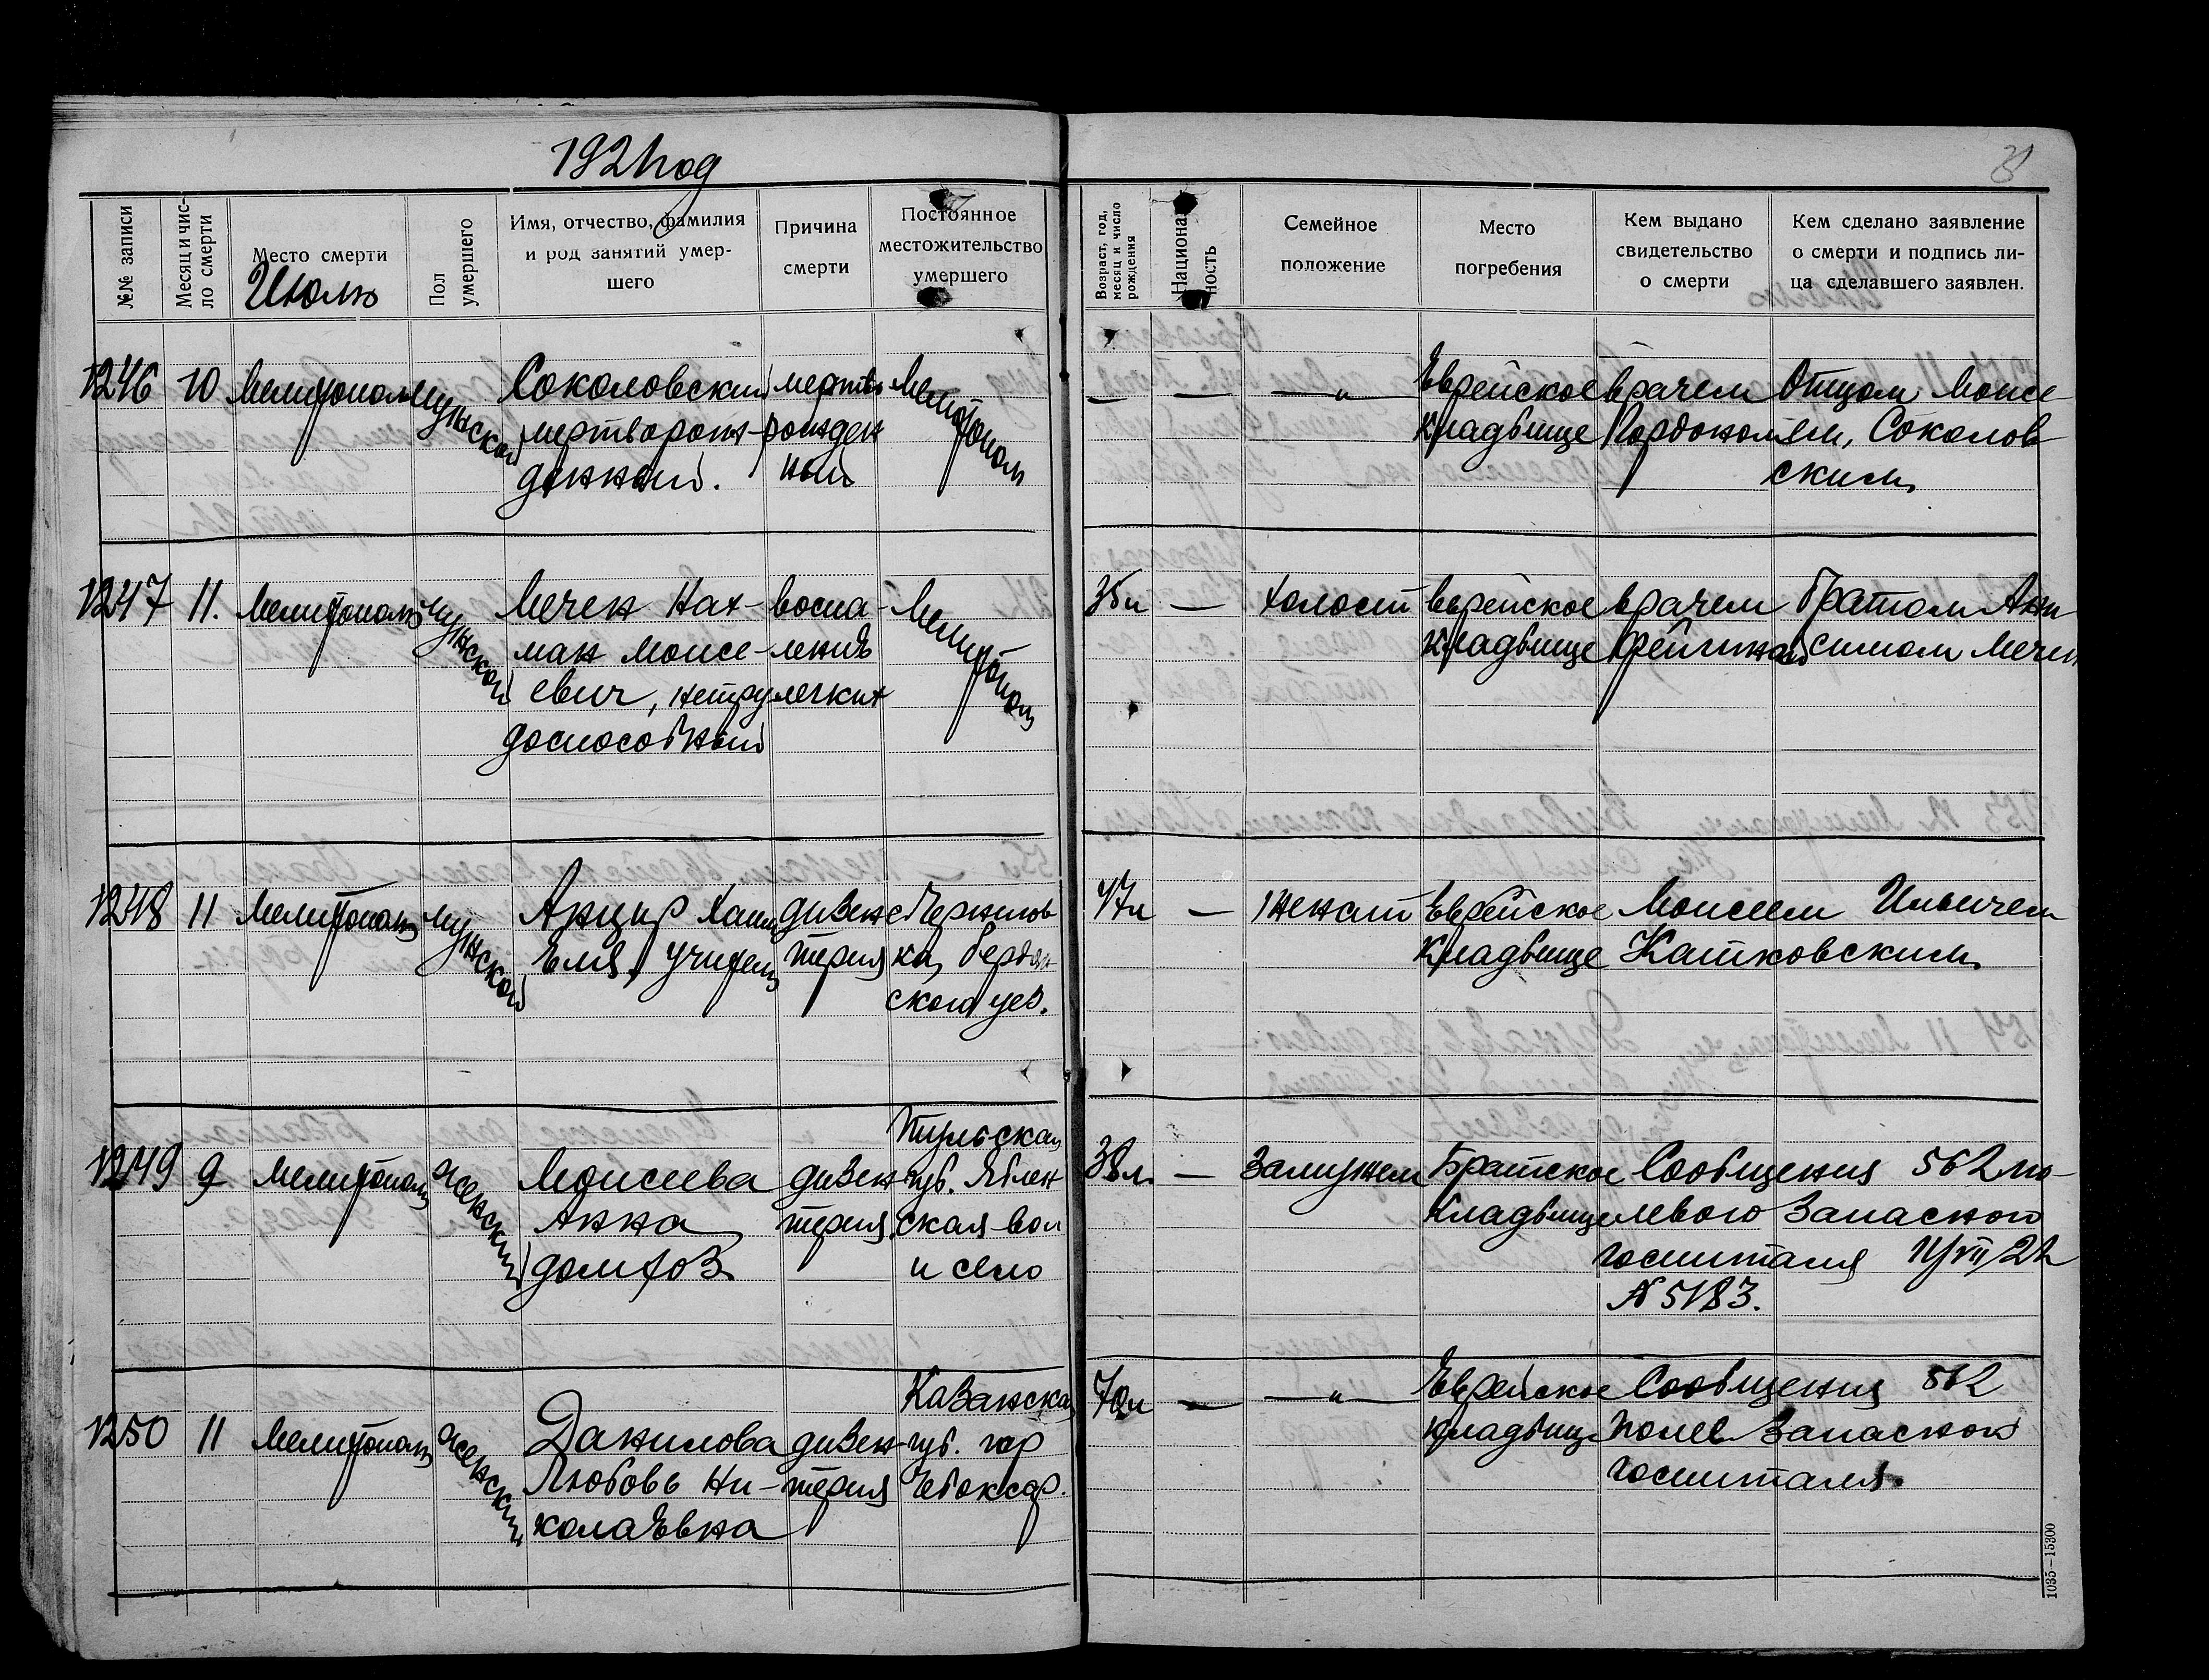 1921 год
№№ записи
Месяц и чис-
ло смерти
Место смерти
Июль
Пол
умершего
Имя, отчество, фамилия
и род занятий умер-
шего
Причина
смерти
Постоянное
местожительство
умершего
Возраст, год,
месяц и число
рождения
Национа
ность
Семейное
положение
Место
погребения
Кем выдано
свидетельство
о смерти
Кем сделано заявление
о смерти и подпись ли-
ца сделавшего заявлен.
1246
10
Мелитополь
мужской
Соколовский
мертворож-
денный.
мертво
рожден
ный
Мелитополь
—
—
— „ —
Еврейское
кладбище
врачем
Отцом Моисе
ем, Соколов
ским
1247
11.
Мелитополь
мужской
Мечен Нах-
ман Моисе-
евич, нетру
доспособный
воспа-
ление
легких
Мелитополь
35 л
—
холост
еврейское
кладбище
врачем
братом
симом Мечен
1248
11
Мелитополь
мужской
Анцир Хаим
Еля, учитель
дизен
терия
Чернигов
ка, Бердян
ского уез.
47 л
—
женат
Еврейское
кладбище
Моисеем Ильичем
Катковским
1249
9
Мелитополь
женский
Моисеева
Анна
домхоз.
дизен
терия.
Тульская
губ. Яблен
ская вол
и село
38 л.
—
замужем
Братское
кладбище
Сообщения 562 по-
левого Запасного
госпиталя
N 5183.
1250
11
Мелитополь
женский
Данилова
Любовь Ни-
колаевна
дизен-
терия
Казанская
губ. гор
Чебоксар.
70 л
—
— „ —
Еврейское
кладбищ
Сообщения 562
полев Запасного
госпиталя.
1035—15300